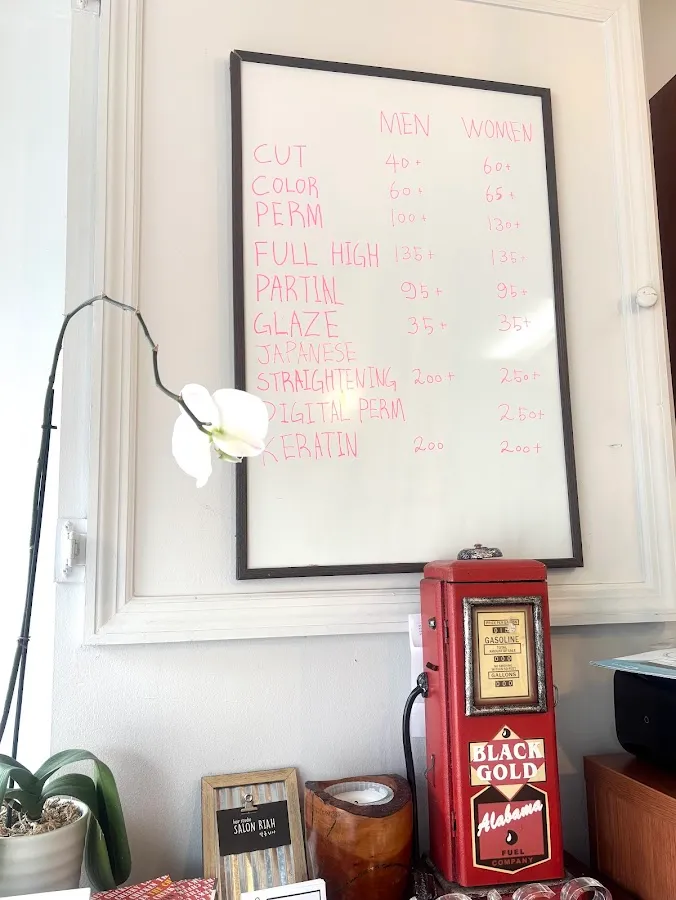 MEN WOMEN
CUT 40+ 60+
COLOR 60+ 65+
PERM 100+ 130+
FULL HIGH 135+ 135+
PARTIAL 95+ 95+
GLAZE 35+ 35+
JAPANESE
STRAIGHTENING 200+ 250+
DIGITAL PERM 250+
KERATIN 200 200+
GASOLINE
GALLONS
BLACK
GOLD
Alabama
FUEL
COMPANY
hair studio
SALON RIAH